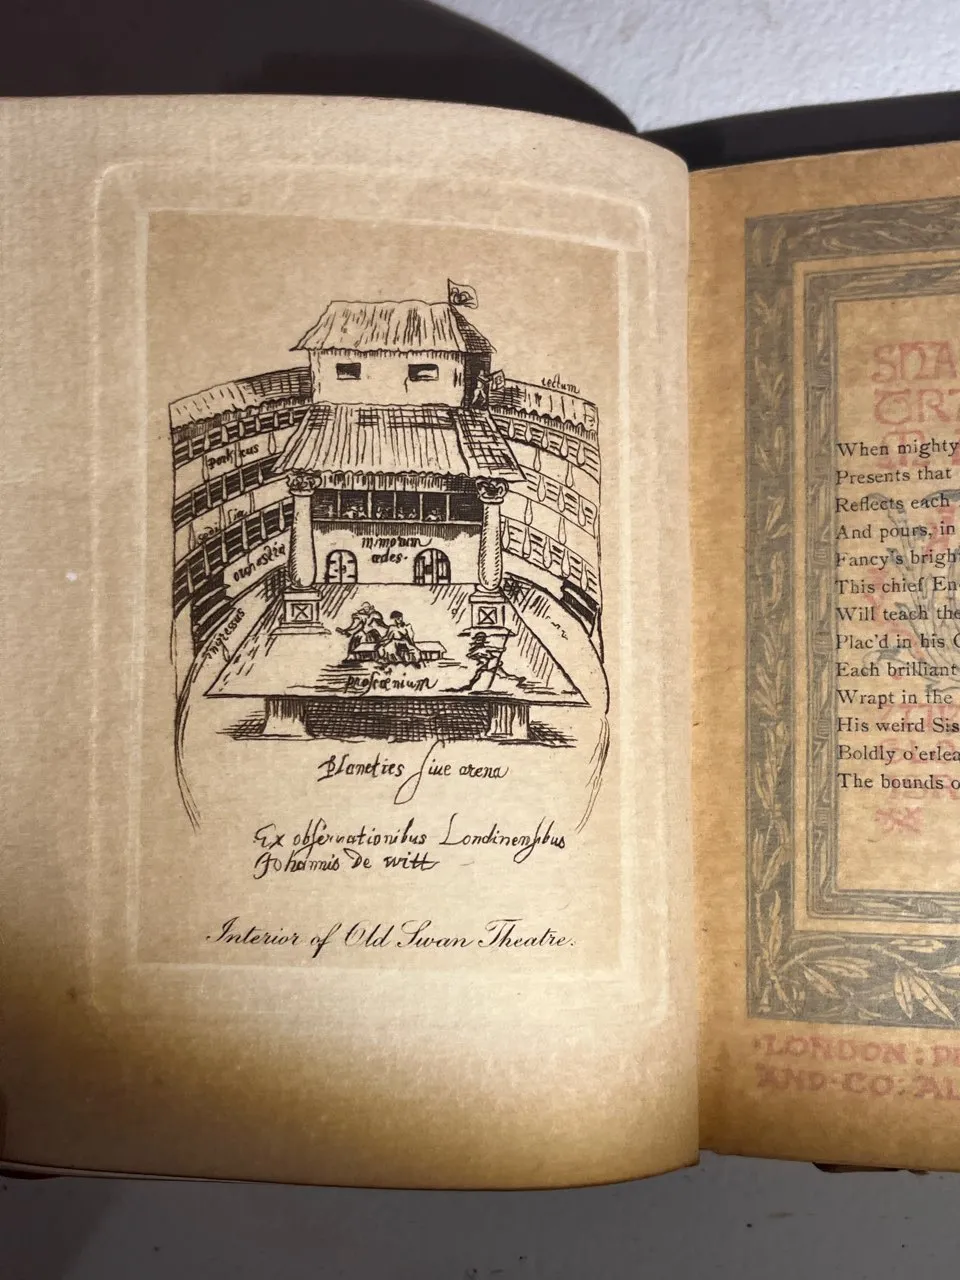 tectum
porticus
sedilia
orchestra
mimorum
ædes.
ingressus
proscænium
Planeties siue arena
Ex obseruationibus Londinensibus
Johannis De witt
Interior of Old Swan Theatre.
When mighty
Presents that
Reflects each
And pours, in
Fancy's brigh
This chief En
Will teach the
Plac'd in his
Each brilliant
Wrapt in the
His weird Sis
Boldly o'erlea
The bounds o
LONDON:
AND·CO: